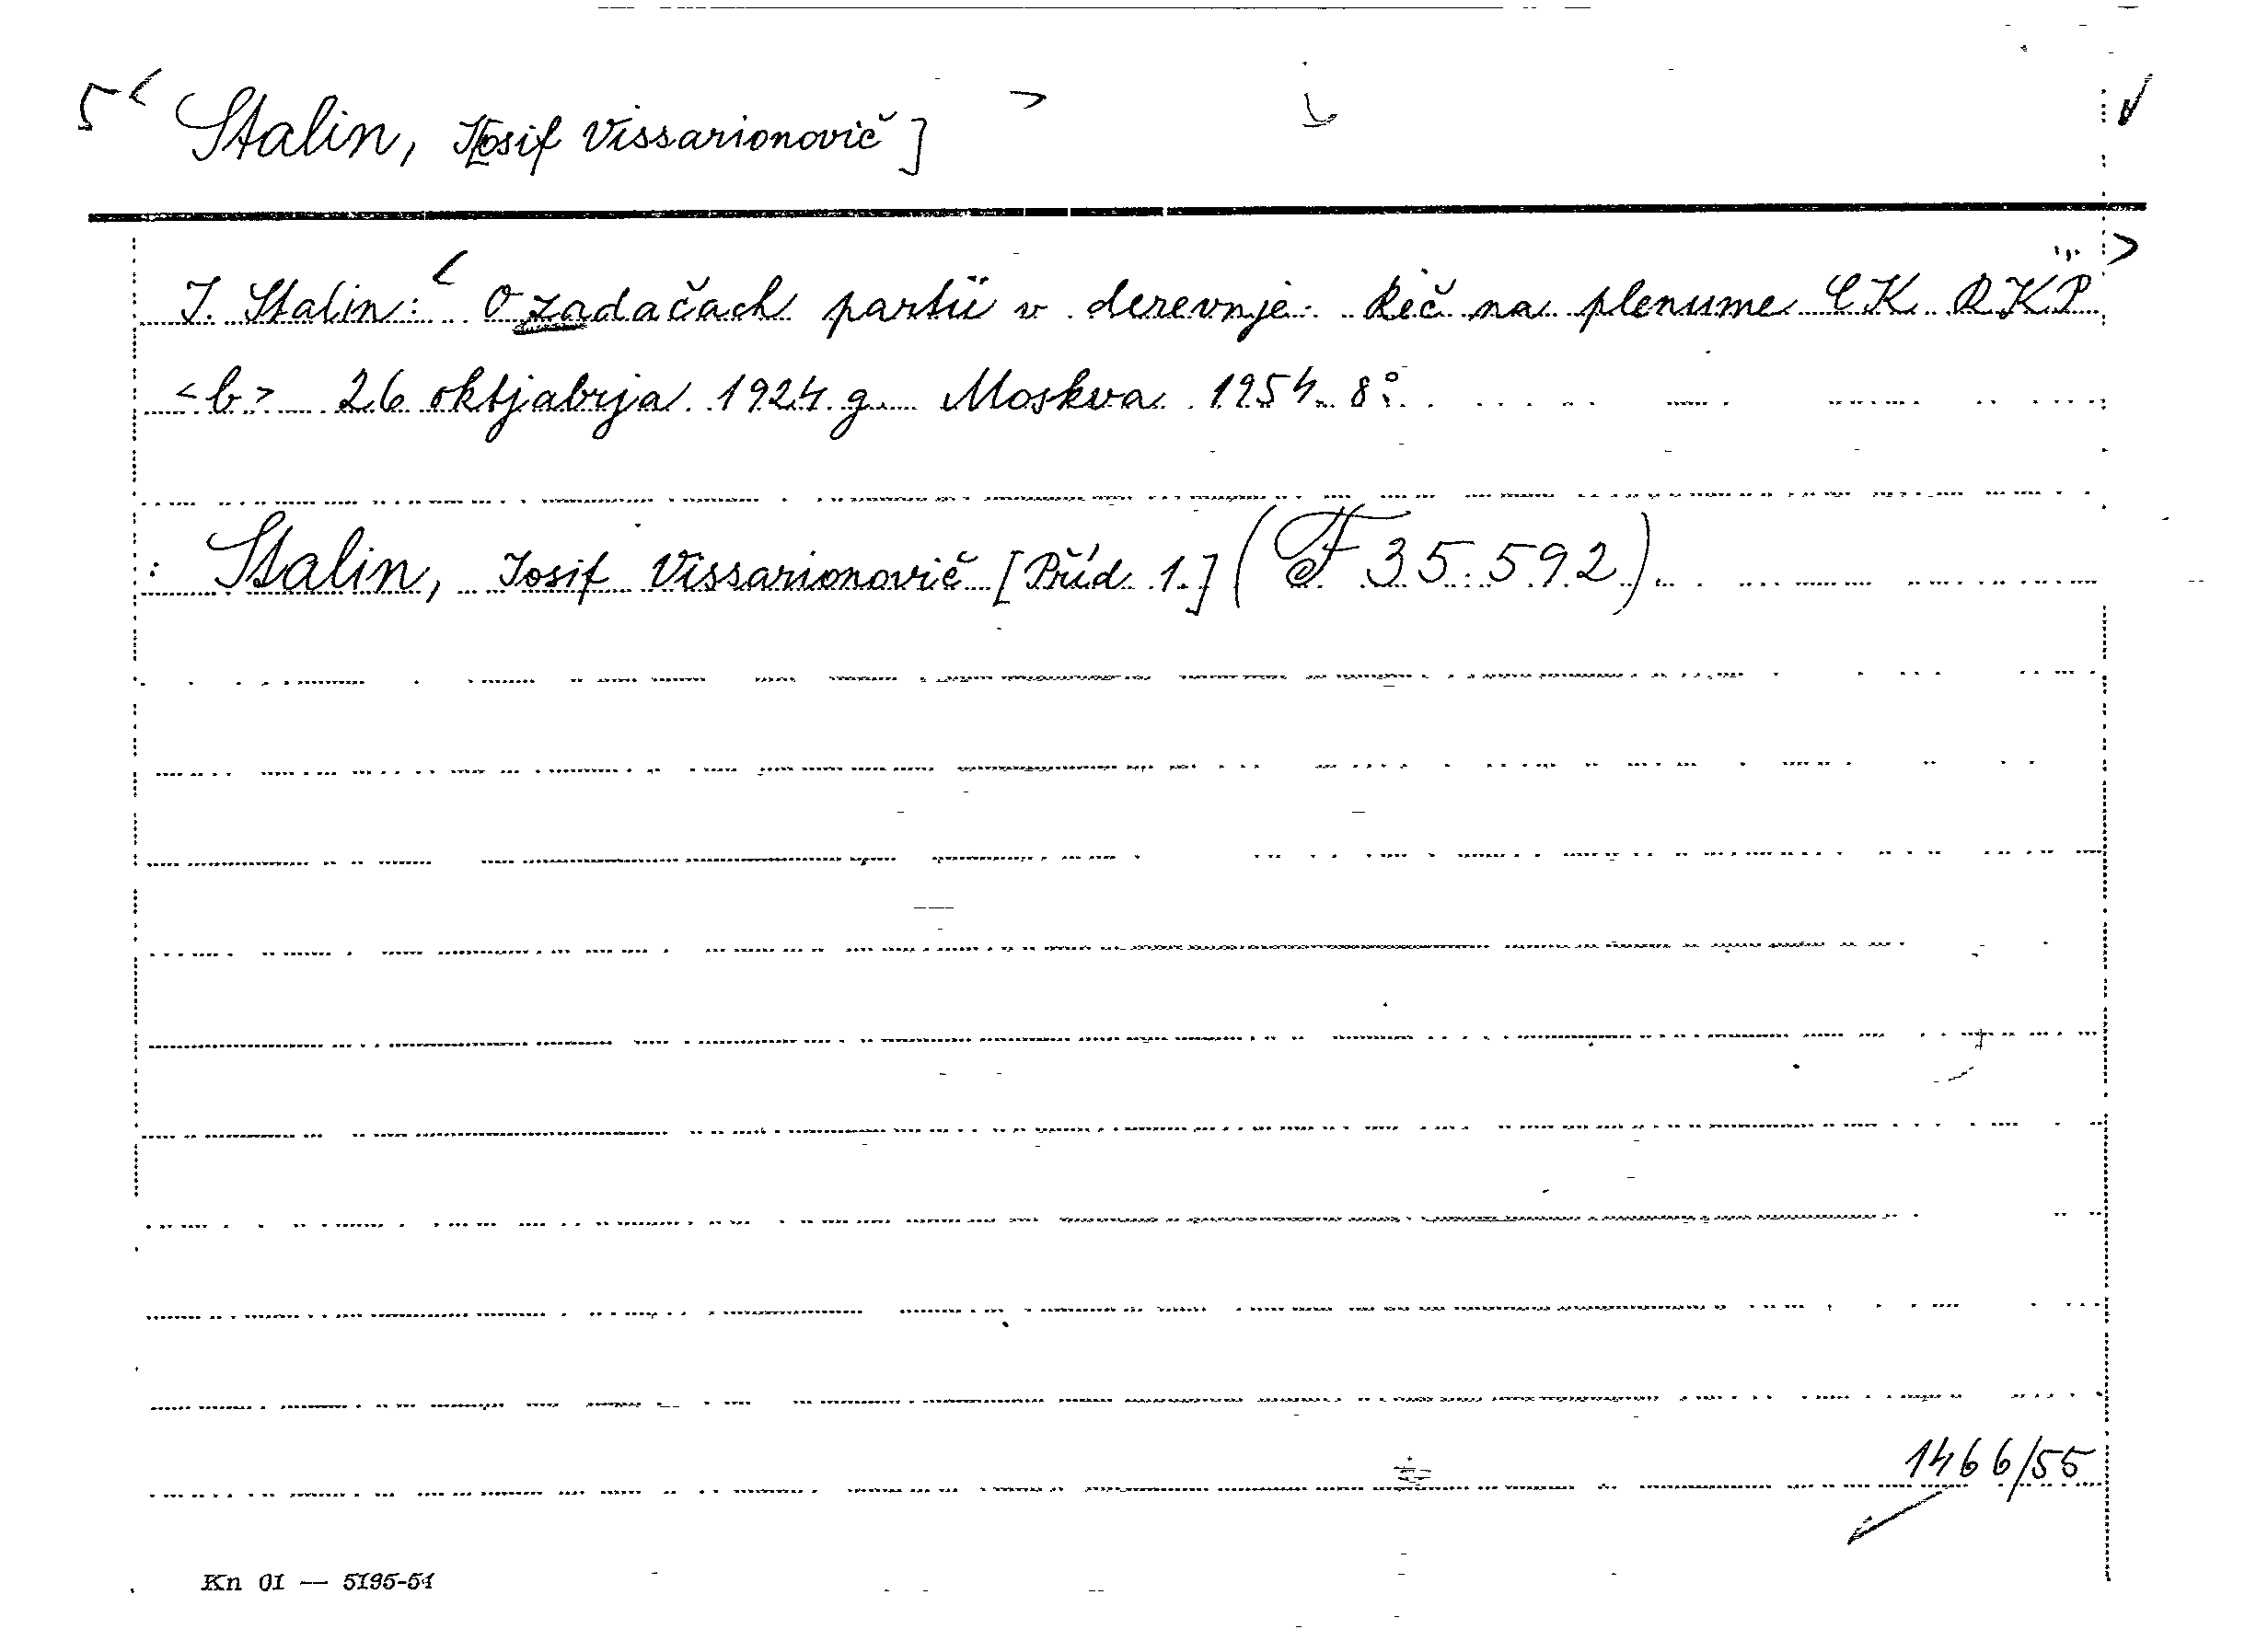 Stalin, I[osif Vissarionovič]
J. Stalin: O zadačach partii v derevnje. Reč na plenume CK RKP
<b> 26 oktjabrja 1924 g. Moskva 1954. 8°.
: Stalin, Iosif Vissarionovič [Příd. 1.] (F 35.592)
1466/55
Kn 01 — 5195-54